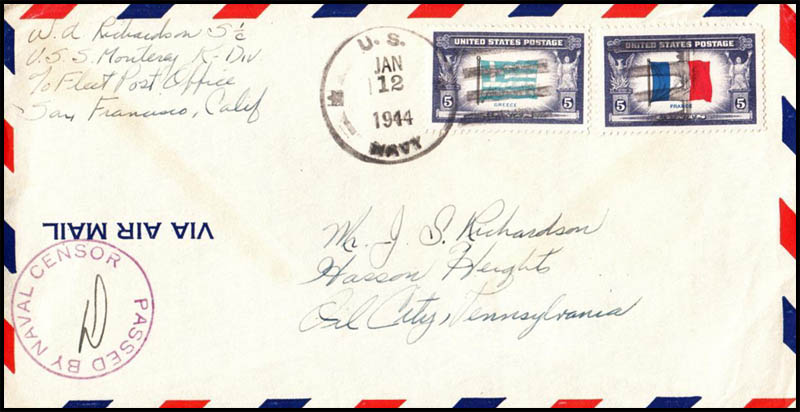 W. A. Richardson S 1/c
U.S.S. Monterey K-Div
c/o Fleet Post Office
San Francisco, Calif
U. S.
JAN
12
1944
NAVY
UNITED STATES POSTAGE
5
5
GREECE
UNITED STATES POSTAGE
5
5
FRANCE
VIA AIR MAIL
PASSED BY NAVAL CENSOR
Mr. J. S. Richardson
Hasson Heights
Oil City, Pennsylvania